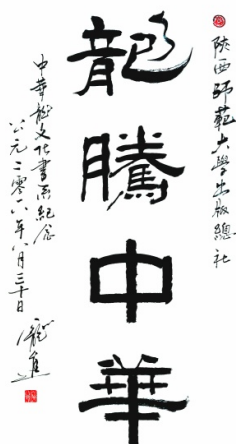 陕西師範大學出版總社
龍騰中華
中華龍文化書系紀念
公元二零一八年八月三十日